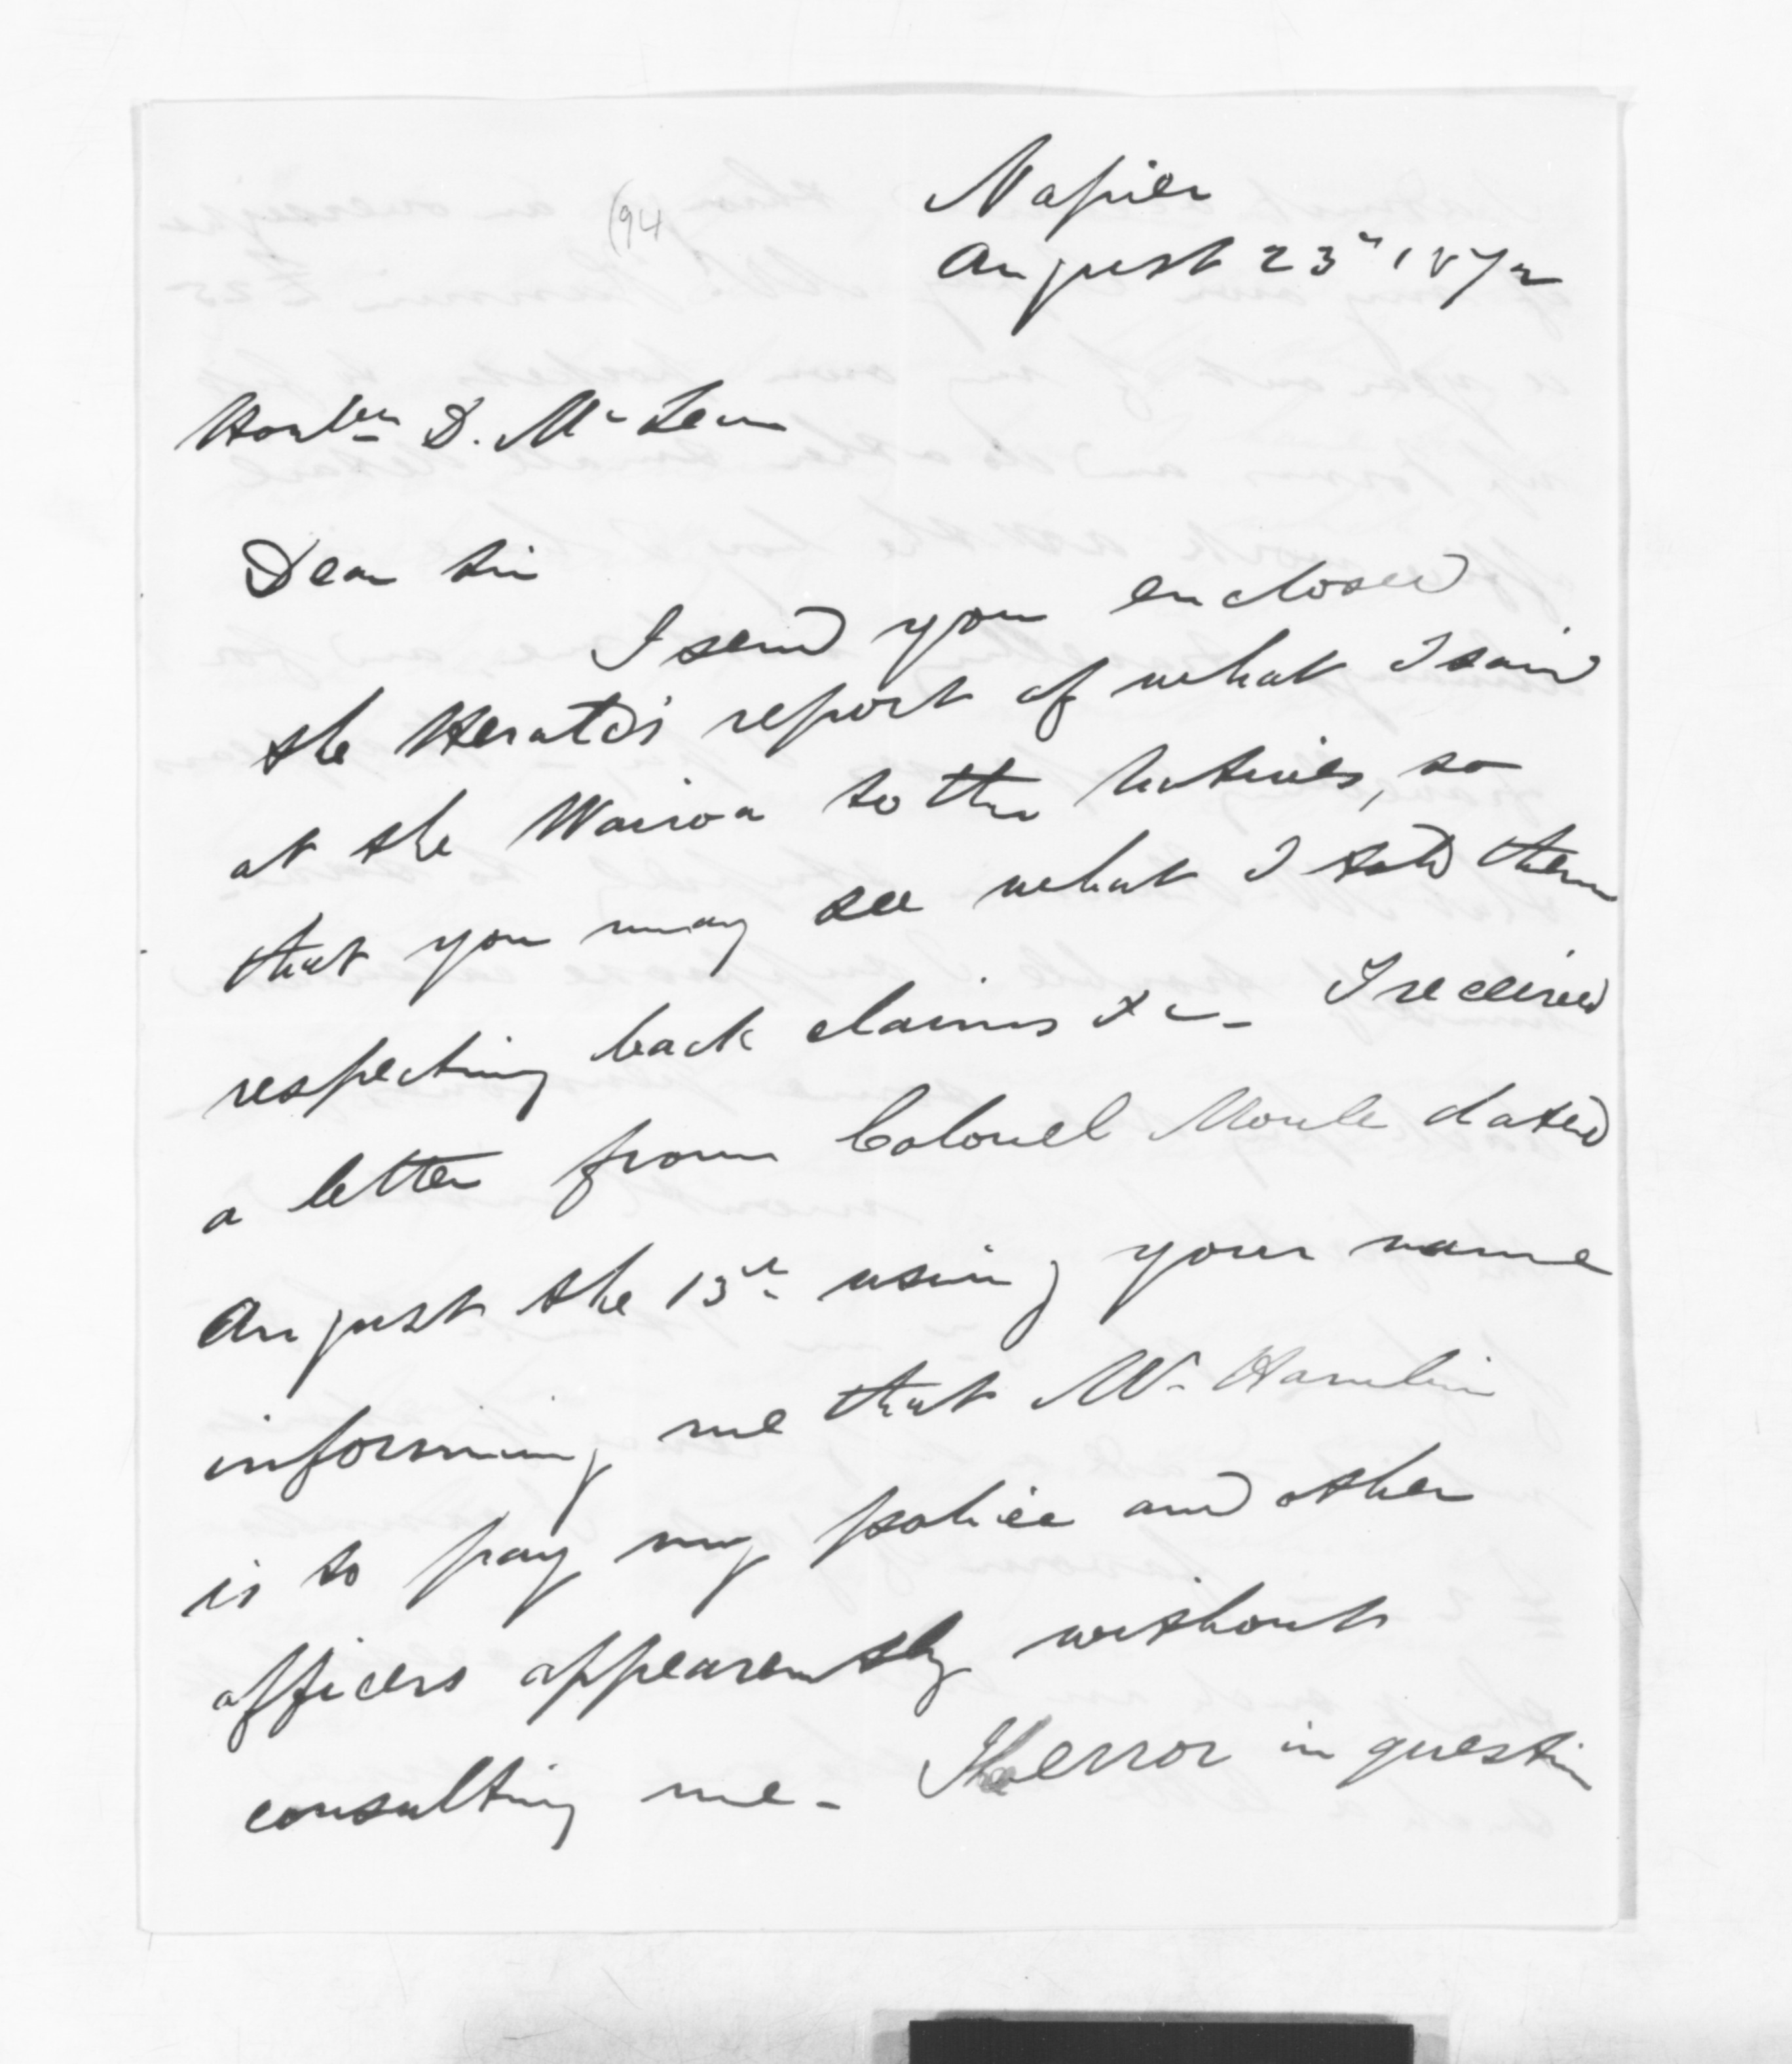 (94
Napier
August 23rd 1872
Honble D. McLean
Dear Sir
I send you enclosed
the Herald's report of what I said
at the Wairoa to the Natives, so
that you may see what I told them
respecting back claims &c - I received
a letter from Colonel Moule dated
August the 13th using your name
informing me that Mr Hamlin
is to pay my police and other
officers appearently without
consulting me - The error in question